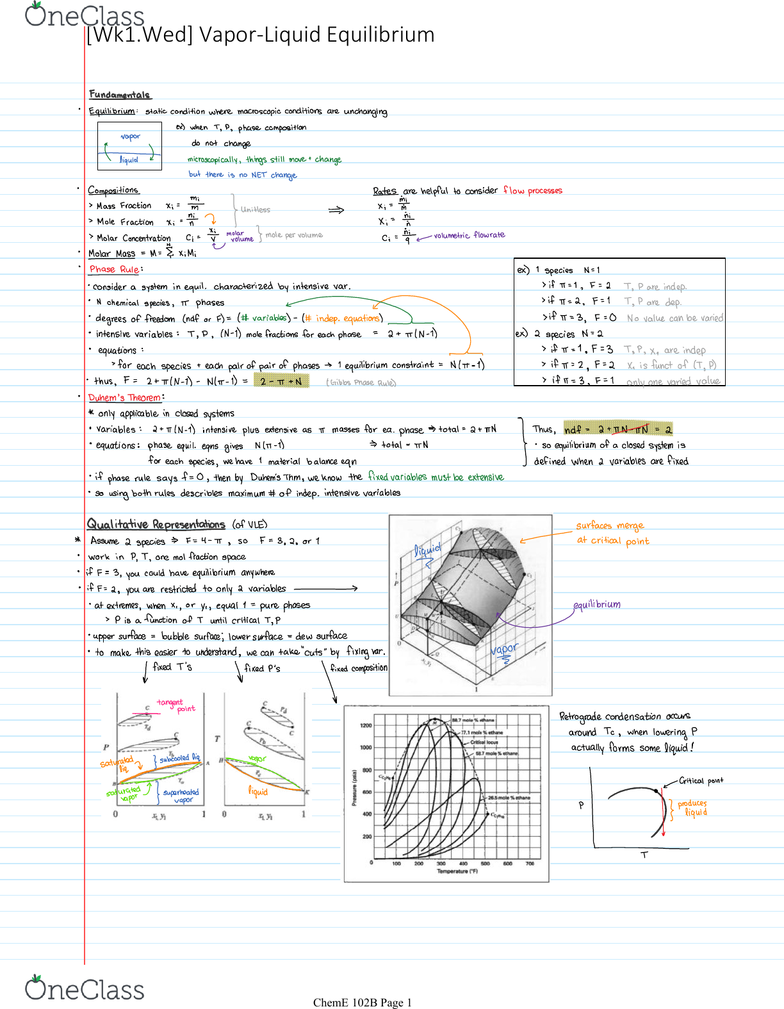 OneClass
[Wk1.Wed] Vapor-Liquid Equilibrium
Fundamentals
• Equilibrium: static condition where macroscopic conditions are unchanging
ex) when T, P, phase composition
do not change
vapor
liquid
microscopically, things still move + change
but there is no NET change
• Compositions
> Mass Fraction xi = mi/m
> Mole Fraction xi = ni/n
} Unitless
> Molar Concentration Ci = xi/V
molar volume
} mole per volume
⇒
Rates are helpful to consider flow processes
xi = ṁi/ṁ
xi = ṅi/ṅ
Ci = ṅi/q ← volumetric flowrate
• Molar Mass = M = Σ xiMi
• Phase Rule:
• consider a system in equil. characterized by intensive var.
• N chemical species, π phases
• degrees of freedom (ndf or F) = (# variables) - (# indep. equations)
• intensive variables: T, P, (N-1) mole fractions for each phase = 2 + π(N-1)
• equations:
> for each species + each pair of pair of phases → 1 equilibrium constraint = N(π-1)
• thus, F = 2 + π(N-1) - N(π-1) = 2 - π + N (Gibbs Phase Rule)
ex) 1 species N=1
> if π=1, F=2 T, P are indep.
> if π=2, F=1 T, P are dep.
> if π=3, F=0 No value can be varied
ex) 2 species N=2
> if π=1, F=3 T, P, x₁ are indep
> if π=2, F=2 x₁ is funct of (T, P)
> if π=3, F=1 only one varied value
• Duhem's Theorem:
* only applicable in closed systems
• variables: 2+π(N-1) intensive plus extensive as π masses for ea. phase ⇒ total = 2+πN
• equations: phase equil. eqns gives N(π-1) ⇒ total = πN
for each species, we have 1 material balance eqn
Thus, ndf = 2+πN-πN = 2
• so equilibrium of a closed system is
defined when 2 variables are fixed
• if phase rule says f=0, then by Duhem's Thm, we know the fixed variables must be extensive
• so using both rules describles maximum # of indep. intensive variables
Qualitative Representations (of VLE)
* Assume 2 species ⇒ F=4-π, so F=3, 2, or 1
• work in P, T, one mol fraction space
• if F=3, you could have equilibrium anywhere
• if F=2, you are restricted to only 2 variables →
• at extremes, when x₁, or y₁, equal 1 = pure phases
> P is a function of T until critical T, P
• upper surface = bubble surface; lower surface = dew surface
• to make this easier to understand, we can take "cuts" by fixing var.
fixed T's
fixed P's
fixed composition
liquid
vapor
surfaces merge
at critical point
equilibrium
tangent
point
C
P
saturated
liq
} subcooled liq
saturated
vapor
} superheated
vapor
A
B
0
x₁, y₁
1
T
vapor
liquid
B
K
0
x₁, y₁
1
Pressure (psia)
1200
1000
800
600
400
200
88.7 mole % ethane
77.1 mole % ethane
Critical locus
58.7 mole % ethane
26.5 mole % ethane
0 100 200 300 400 500 600 700
Temperature (°F)
Retrograde condensation occurs
around Tc, when lowering P
actually forms some liquid!
Critical point
P
} produces
liquid
T
OneClass
ChemE 102B Page 1